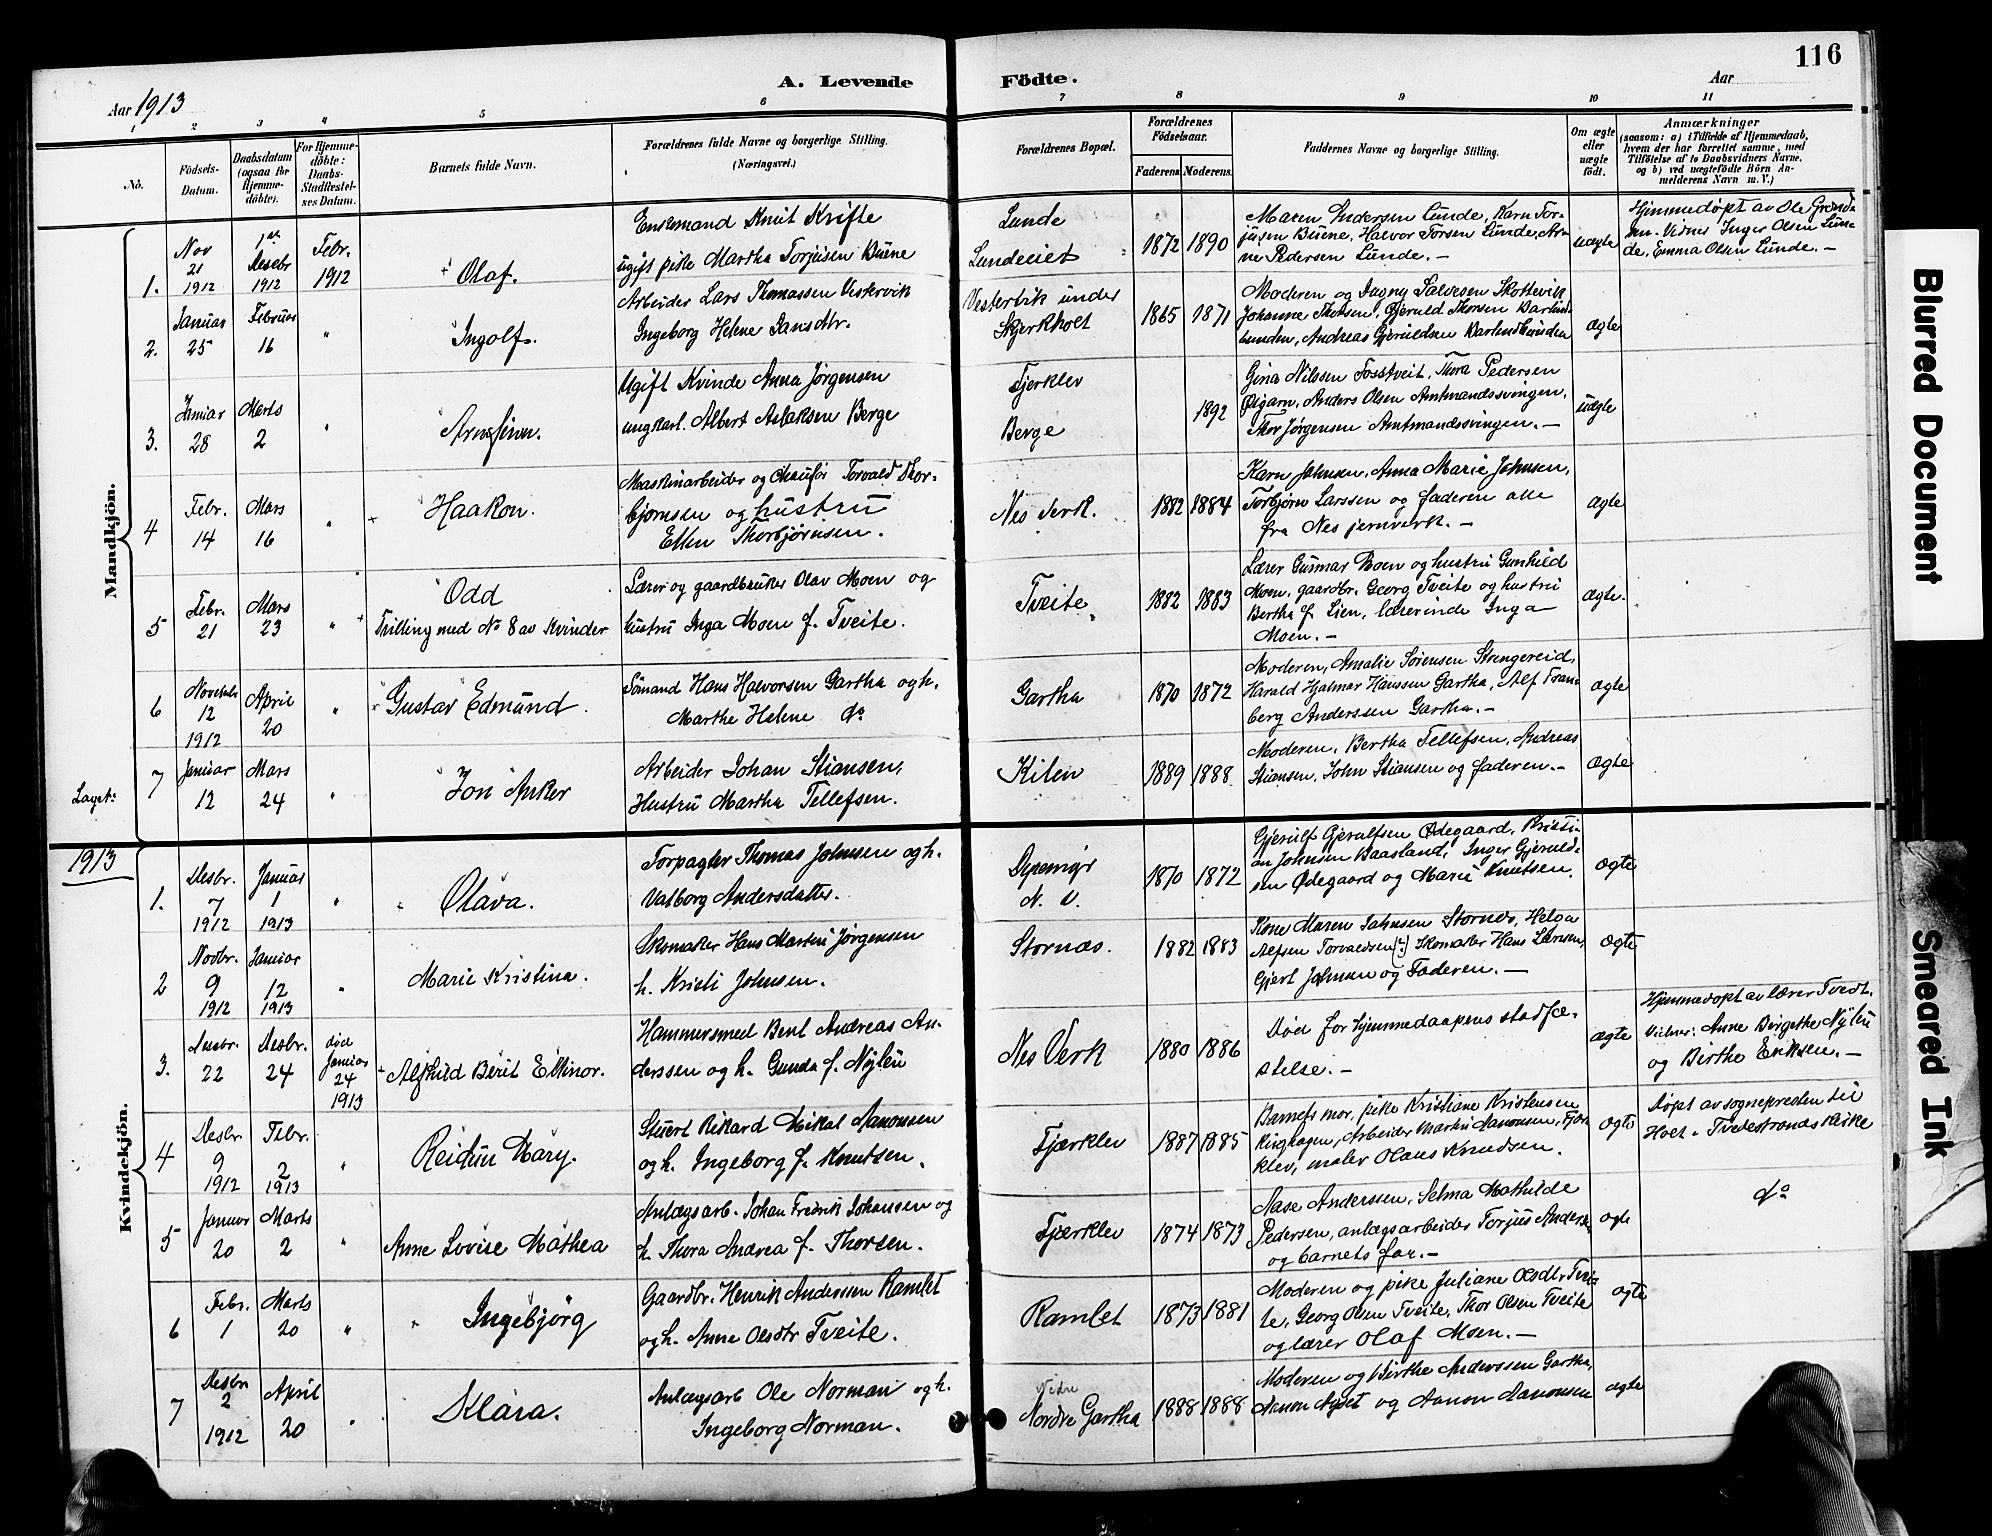 116
A. Levende Födte.
Aar 1913
Aar
1 2 3 4 5 6 7 8 9 10 11
No.
Födsels-Datum.
Daabsdatum (ogsaa for Hjemme-döbte).
For Hjemme-döbte: Daabs-Stadfæstel-ses Datum.
Barnets fulde Navn.
Forældrenes fulde Navne og borgerlige Stilling.
(Næringsvei.)
Forældrenes Bopæl.
Forældrenes Födselsaar.
Faderens Moderens.
Faddernes Navne og borgerlige Stilling.
Om ægte eller uægte födt.
Anmærkninger
(saasom: a) i Tilfælde af Hjemmedaab, hvem der har forrettet samme, med Tilföielse af to Daabsvidners Navne, og b) ved uægtefödte Börn An-melderens Navn m. V.)
Mandkjön.
1. Nov 21 1912
1ste Desebr 1912
Febr. 1912
Olaf.
Enkemand Knut Krifte
ugift pike Martha Torjusen Buene
Lunde
Lundeeiet
1872 1890
Maren Andersen Lunde, Karn Tor-
jusen Buene, Halvor Torsen Lunde, Ar-
ne Pedersen Lunde. —
uægte
Hjemmedøpt av Ole
Vidnes Inger Olsen Lun-
de, Emma Olsen Lunde. —
2. Januar 25
Februar 16
"
Ingolf.
Arbeider Lars Thomassen Vestervik
Ingeborg Helene Jansdtr.
Vestervik under
Skjerkholt
1865 1871
Moderen og Dagny Salvesen Skottevik
Johanne Thorsen, Gjeruld Thorsen Barlind-
bunden, Andreas Gjeruldsen Barlindbunden
ægte
3. Januar 28
Marts 2
"
Arnfinn.
Ugift Kvinde Anna Jørgensen
ungkarl. Albert Aslaksen Berge
Fjerklev
Berge
1892
Gina Nilssen Fosstveit, Thora Pedersen
Øigarn, Anders Olsen Amtmandssvingen,
Thor Jørgensen Amtmandssvingen. —
uægte
4 Febr. 14
Mars 16
"
Haakon.
Maskinarbeider og Chaufør Torvald Thor-
bjørnsen og hustru
Ellen Thorbjørnsen.
Nes Verk.
1882 1884
Karn Johnsen, Anna Marie Johnsen,
Torbjørn Larssen og faderen alle
fra Nes jernverk. —
ægte
5 Febr. 21
Mars 23
"
Odd
Trilling med No 8 av Kvinder
Lærer og gaardbruker Olav Moen og
hustru Inga Moen f. Tveite.
Tveite
1882 1883
Lærer Gunnar Boen og hustru Gunhild
Moen, gaardbr. Georg Tveite og hustru
Bertha f. Lien, lærerinde Inga
Moen. —
ægte.
6 Novebr. 12 1912
April 20
"
Gustav Edmund.
Sømand Hans Halvorsen Gartha og h.
Marthe Helene do
Gartha
1870 1872
Moderen, Amalie Sørensen Strengereid,
Harald Hjalmar Hanssen Gartha, Alf Fran-
berg Anderssen Gartha. —
ægte
7 Januar 12
Mars 24
"
Jon Anker
Arbeider Johan Stiansen,
Hustru Martha Tellefsen.
Kilen
1889 1888
Moderen, Bertha Tellefsen, Andreas
Stiansen, John Stiansen og faderen. —
ægte
1913
Kvindekjön.
1. Desbr. 7 1912
Januar 1 1913
"
Olava.
Forpagter Thomas Johnsen og h.
Valborg Andersdatter.
Dypemyr
N. V.
1870 1872
Gjerulf Gjerulfsen Ødegaard, Kristi-
an Johnsen Baasland, Inger Gjeruld-
sen Ødegaard og Marie Knutsen.
ægte
2 Novbr. 9 1912
Januar 12 1913
"
Marie Kristina.
Skomaker Hans Martin Jørgensen
h. Kristi Johnsen.
Stornæs.
1882 1883
Kone Maren Jahnsen Stornæs, Helga
Alfsen Torvaldsen Skomaker Hans Larsen,
Gjert Johnsen og Faderen. —
ægte
3. Desbr. 22
Desbr. 24
død Januar 24 1913
Alfhild Berit Ellinor.
Hammersmed Bent Andreas An-
derssen og h. Gunda f. Nylén
Nes Verk
1880 1886
Død før hjemmedaapens stadfæ-
stelse. —
ægte
Hjemmedøpt av lærer Tvedt.
Vidner: Anne Birgethe Nylén
og Birthe Eriksen. —
4 Desbr. 9 1912
Febr. 2 1913
"
Reidun Mary.
Stuert Rikard Mikal Aanonsen
og h. Ingeborg f. Knutsen.
Fjærklev
1887 1885
Barnets mor, pike Kristiane Kristensen
Ringhagen, Arbeider Martin Aanonsen, Fjær-
klev, maler Olaus Knudsen.
ægte
Døpt av sognepresten til
Holt i Tvedestrands kirke
5 Januar 20
Marts 2
"
Anne Lovise Mathea
Anlægsarb. Johan Fredrik Johansen og
h. Thora Andrea f. Thorsen.
Fjærklev
1874 1873
Aase Anderssen, Selma Mathilde
Pedersen, anlægsarbeider Torjus Anders-
og barnets far. —
ægte
do
6 Febr. 1
Marts 20
"
Ingebjørg
Gaardbr. Henrik Anderssen Ramlet
og h. Anne Olsdtr Tveite.
Ramlet
1873 1881
Moderen og pike Juliane Olsdtr Tvei-
te, Georg Olsen Tveite, Thor Olsen Tveite
og lærer Olaf Moen. —
ægte
7 Desbr 2 1912
April 20
"
Klara.
Anlægsarb Ole Norman og h.
Ingeborg Norman.
Nedre
Nordre Gartha
1888 1888
Moderen og Birthe Anderssen Gartha,
Aanon og Aanon Aanonsen
ægte
Blurred Document
Smeared Ink